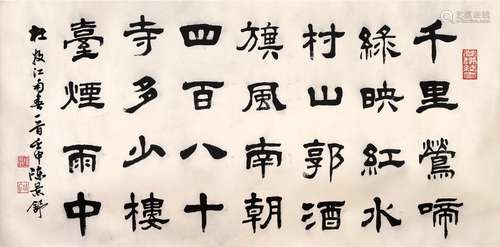 千里鶯啼
綠映紅水
村山郭酒
旗風南朝
四百八十
寺多少樓
臺煙雨中
杜牧江南春一首壬申陳景舒